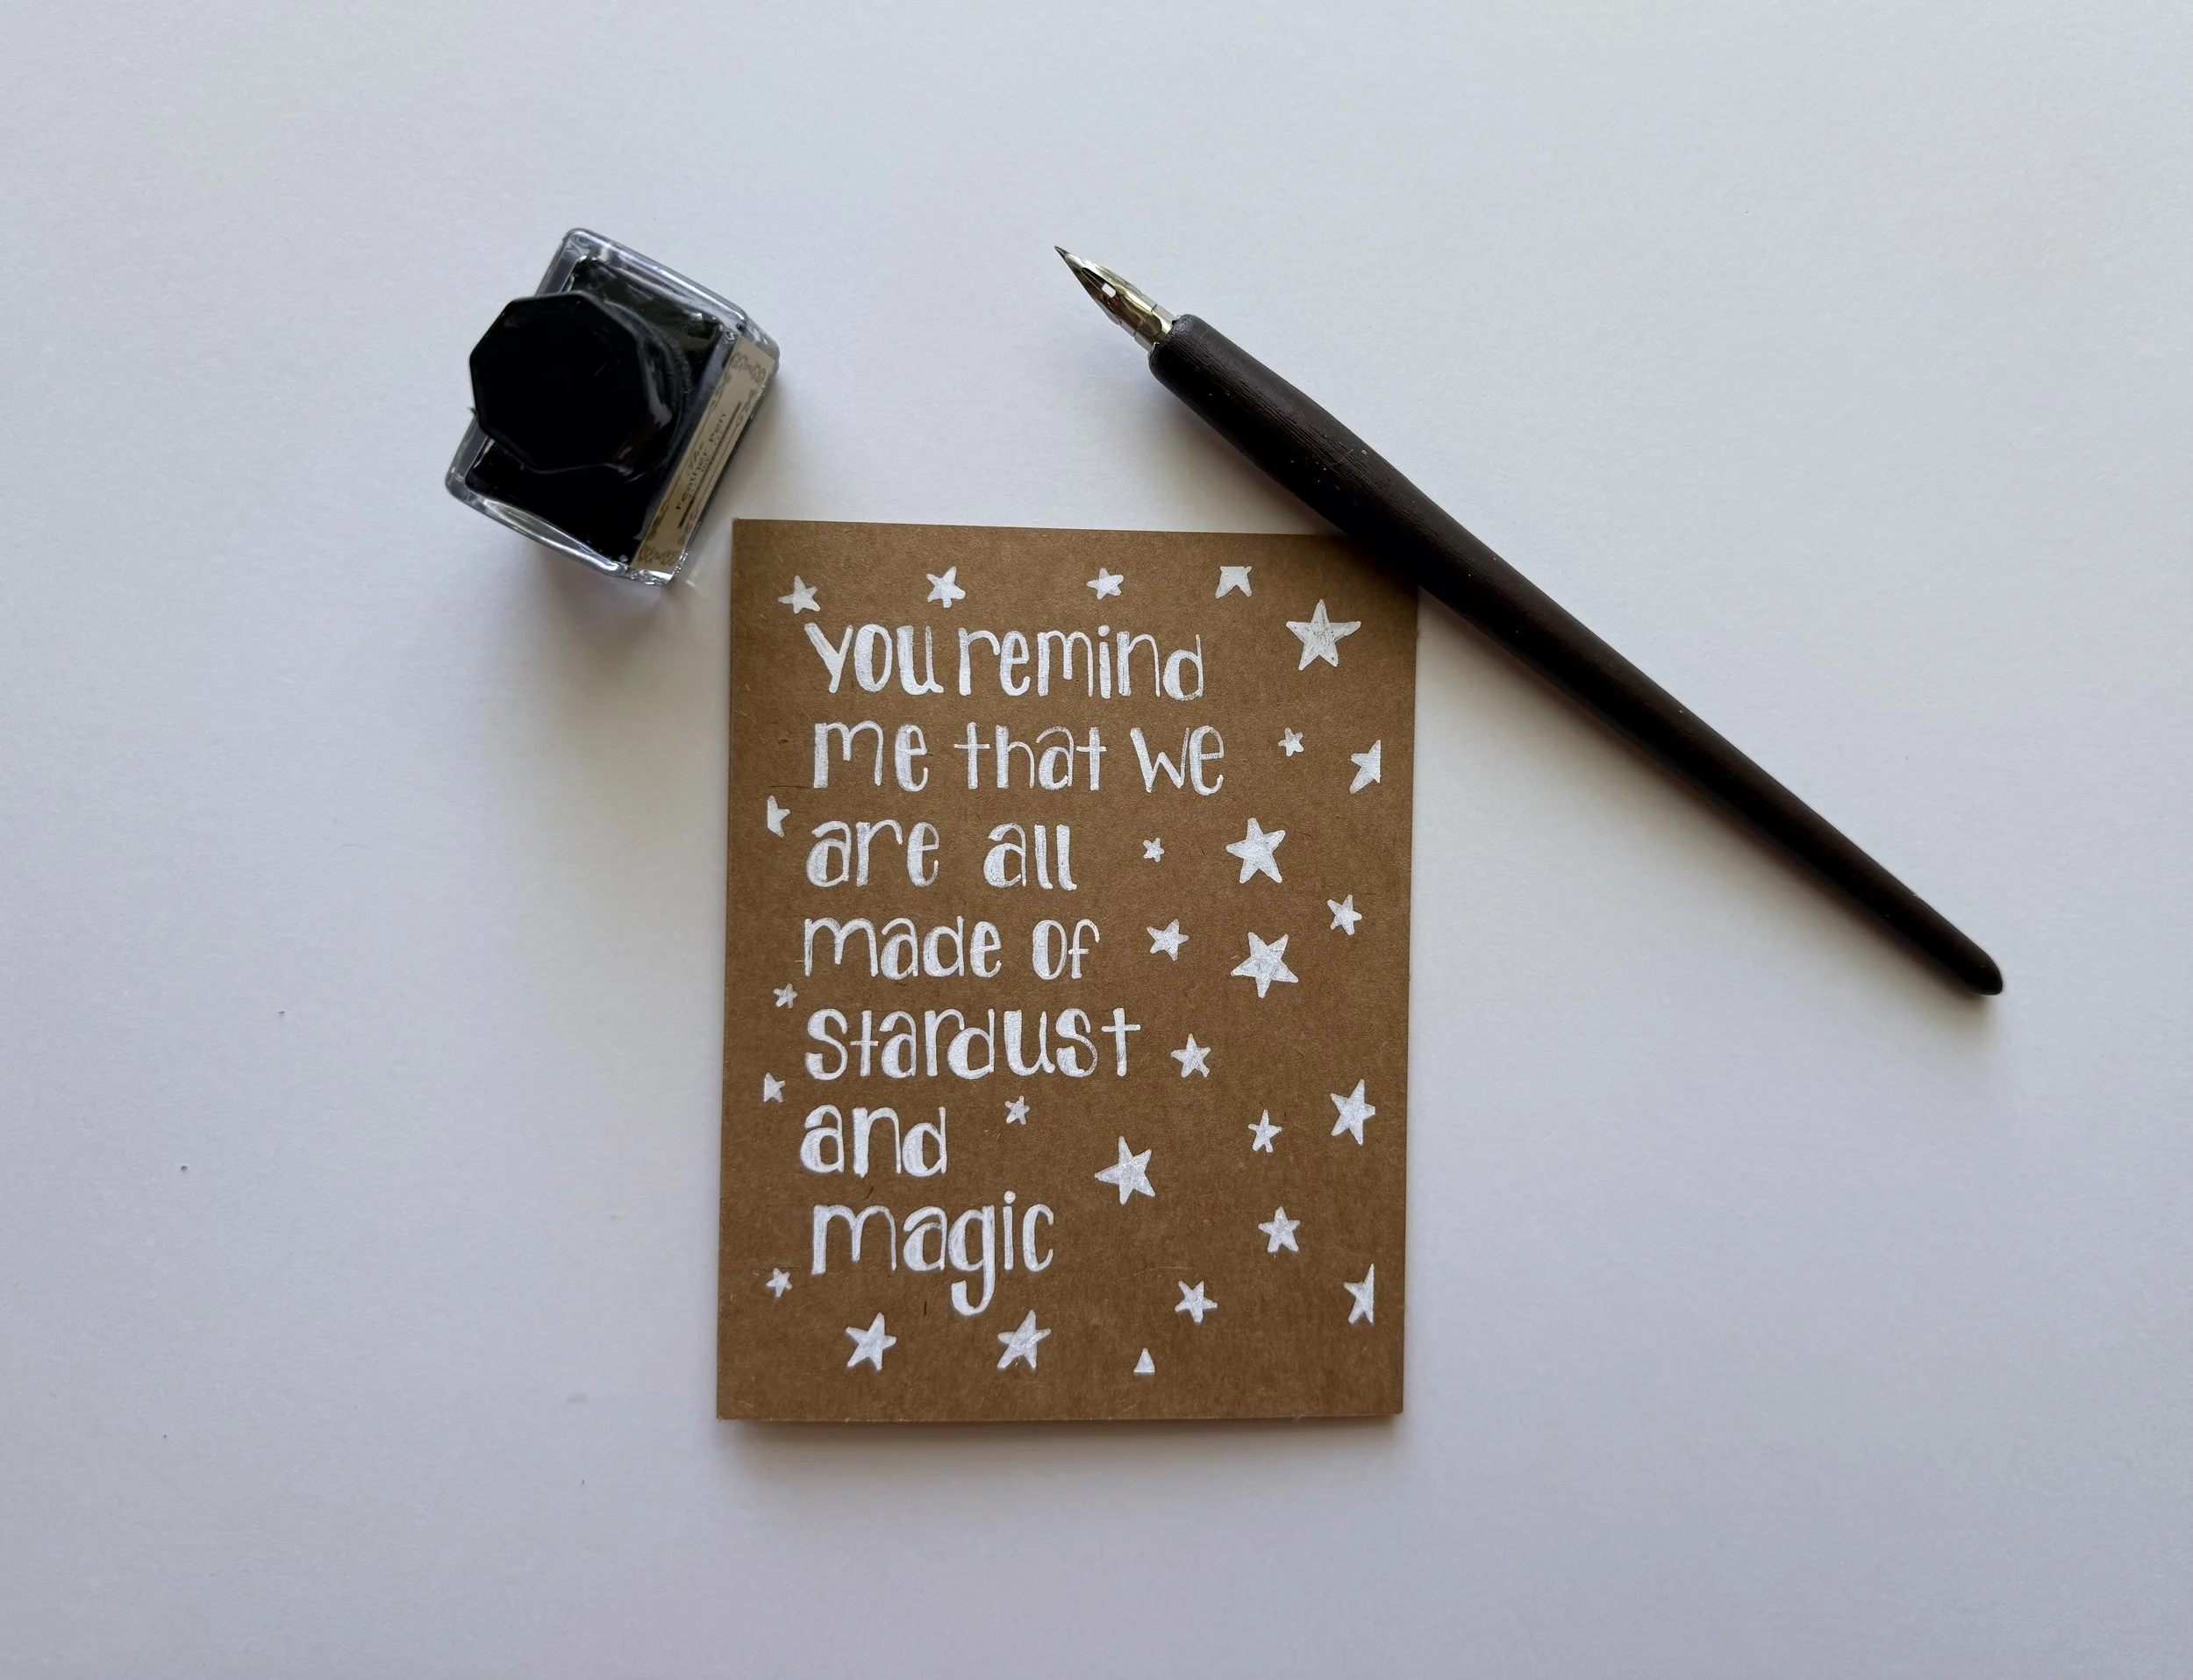 you remind
me that we
are all
made of
stardust
and
magic
The
Feather Pen